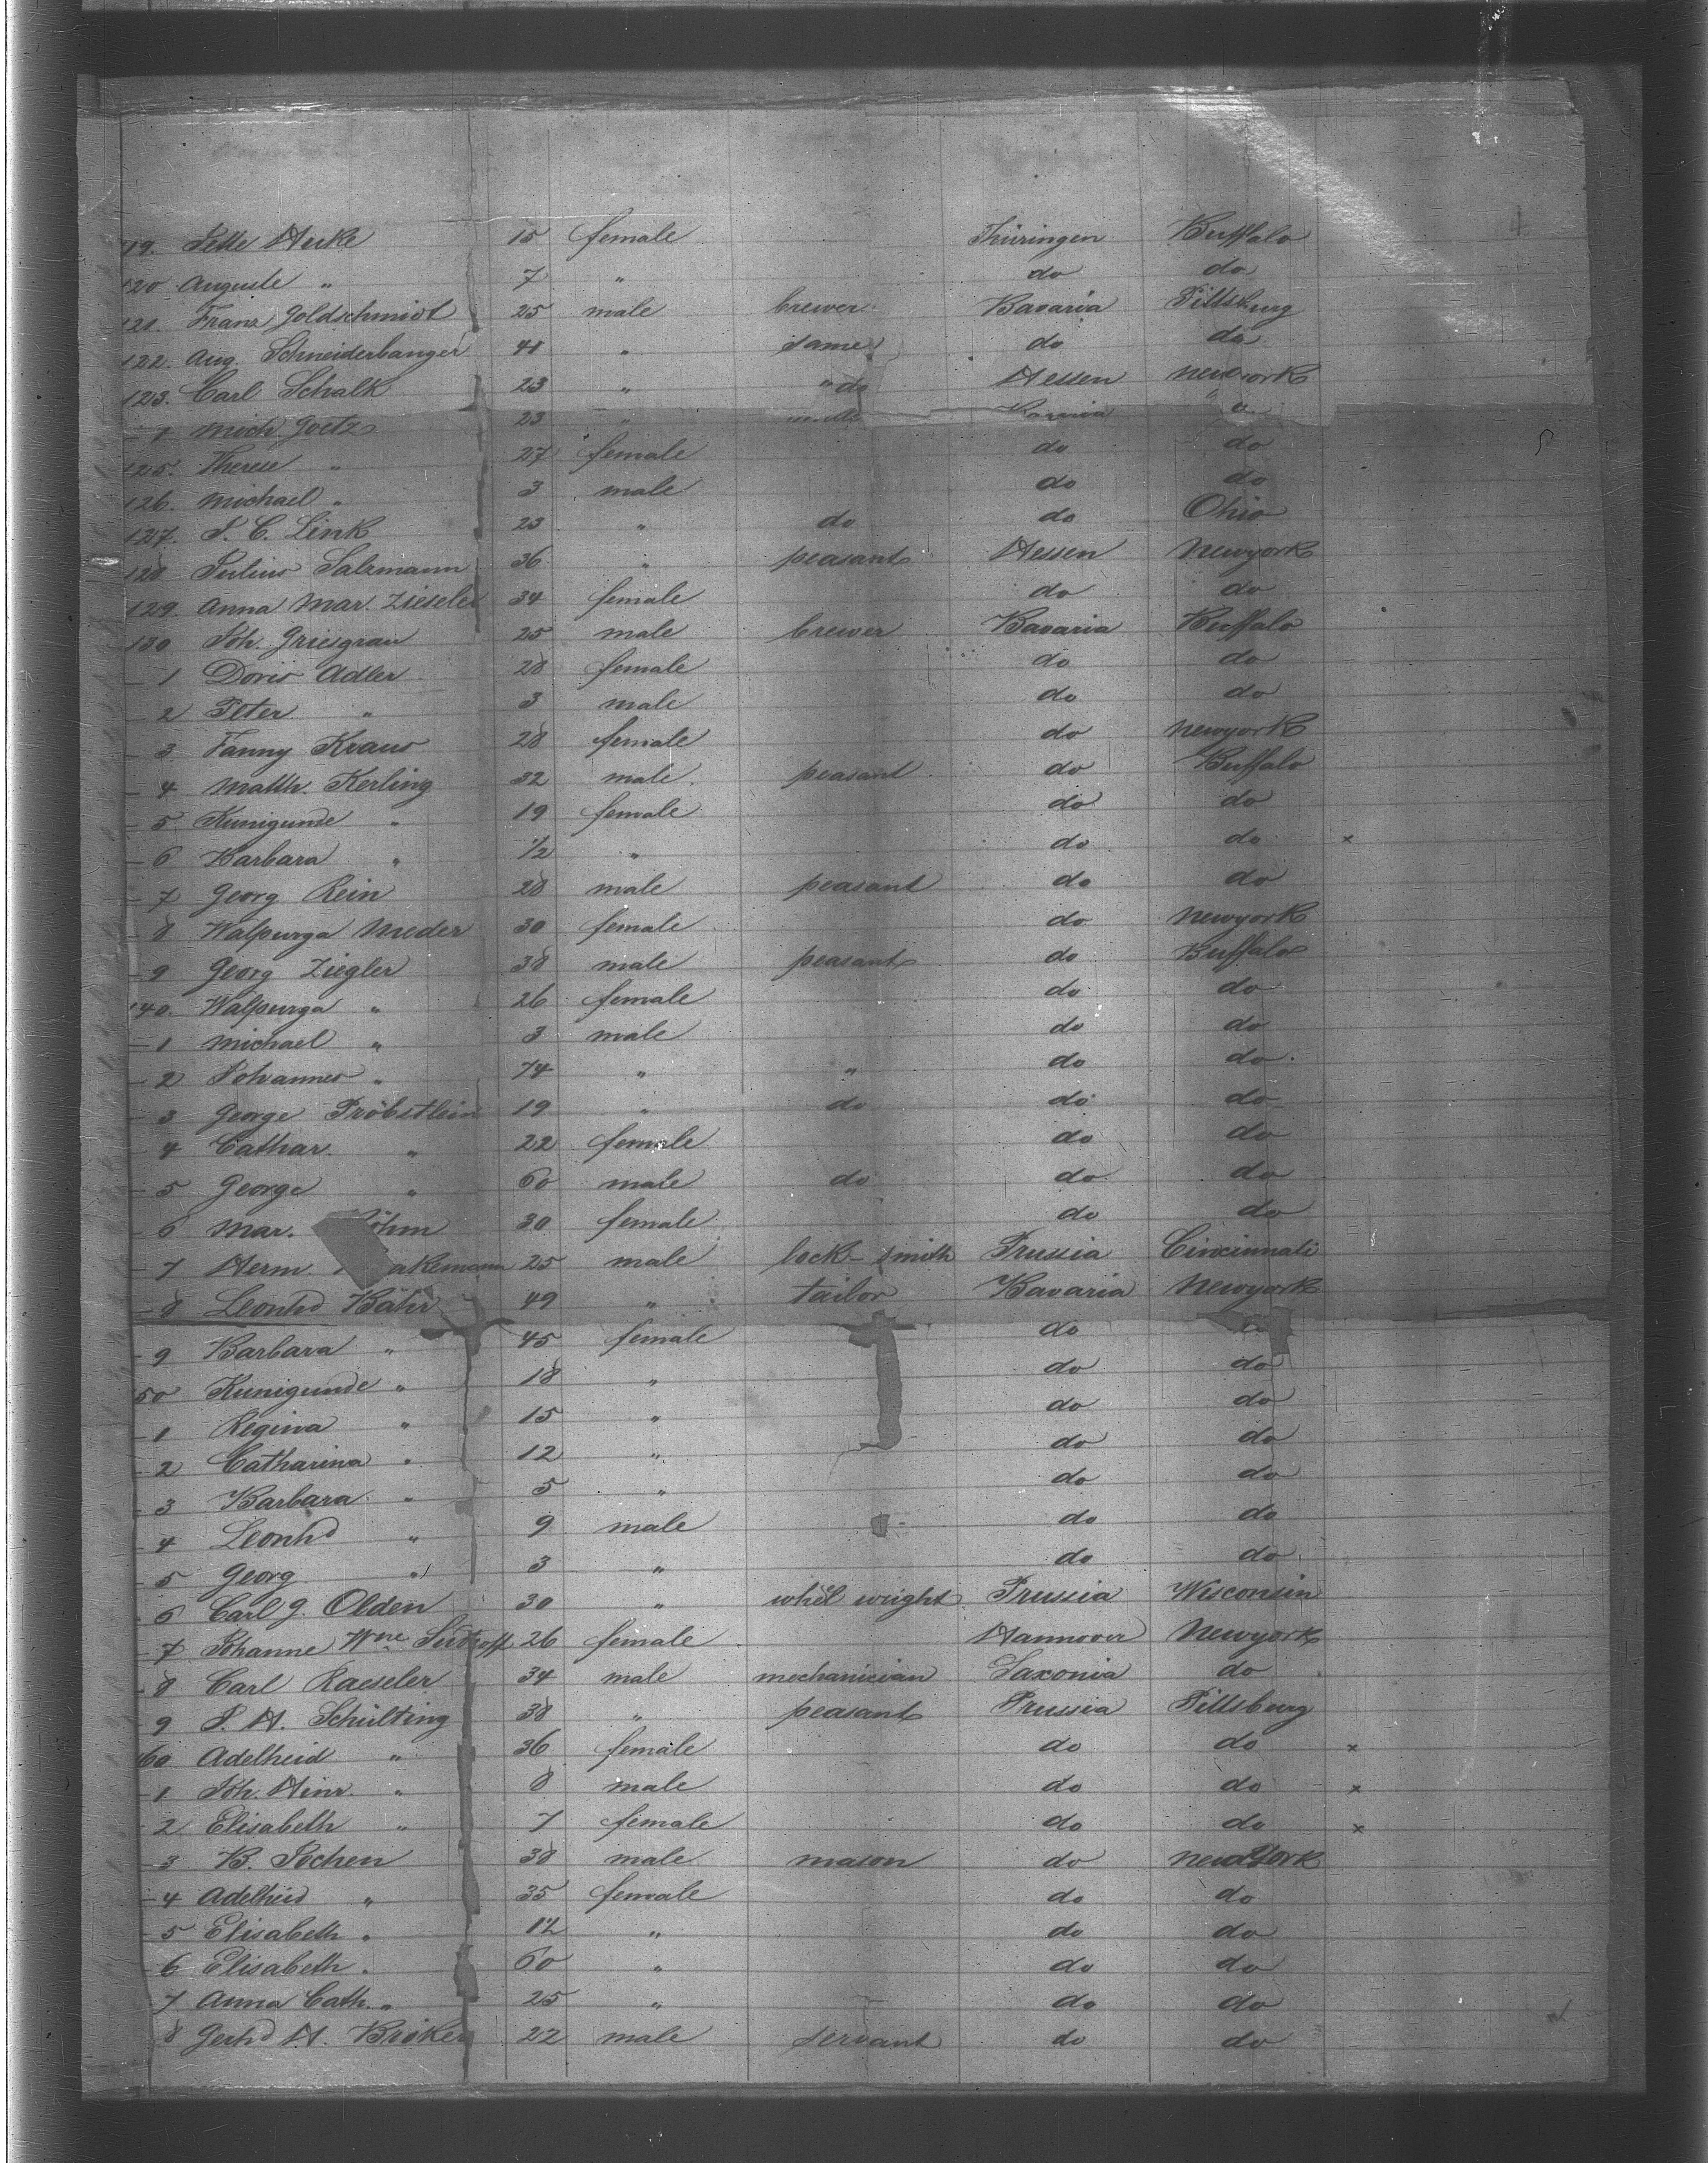 4
119. Jette Huke 15 female Thüringen Buffalo
120 Auguste " 7 " do do
121. Franz Goldschmidt 25 male brewer Bavaria Pittsburg
122. Aug. Schneiderbanger 41 " same do do
123. Carl Schalk 23 " " do Hessen New York
Mich. Goetz 23 " Bavaria
125. Therese " 27 female do do
126. Michael " 3 male do do
127. J. C. Link 23 " do do Ohio
128 Julius Salzmann 36 " peasant Hessen Newyork
129. Anna Mar. Zieseler 34 female do do
130 Joh. Griesgrau 25 male brewer Bavaria Buffalo
1 Doris Adler 28 female do do
2 Peter " 3 male do do
3 Fanny Kraus 28 female do Newyork
4 Matth. Kerling 32 male peasant do Buffalo
5 Kunigunde " 19 female do do
6 Barbara " 1/2 " do do x
7 Georg Rein 28 male peasant do do
8 Walpurga Meder 30 female do Newyork
9 Georg Ziegler 38 male peasant do Buffalo
140. Walpurga " 26 female do do
1 Michael " 3 male do do
2 Johannes " 74 " " do do
3 George Pröbstlein 19 " do do do
4 Cathar. " 22 female do do
5 George " 60 male do do do
6 Mar. öhm 30 female do do
7 Herm. akemann 25 male lock-smith Prussia Cincinnati
8 Leonhd Bähr 49 " tailor Bavaria Newyork
9 Barbara " 45 female do
50 Kunigunde " 18 " do do
1 Regina " 15 " do do
2 Catharina " 12 " do do
3 Barbara " 5 " do do
4 Leonhd " 9 male do do
5 Georg " 3 " do do
6 Carl G. Olden 30 " whel wright Prussia Wisconsin
7 Johanne Wne 26 female Hannover Newyork
8 Carl Raeseler 34 male mechanician Saxonia do
9 J. H. Schülting 38 " peasant Prussia Pittsburg
60 Adelheid " 36 female do do x
1 Joh. Hinr. " 8 male do do x
2 Elisabeth " 7 female do do x
3 B. Jochen 38 male mason do New York
4 Adelheid " 35 female do do
5 Elisabeth " 12 " do do
6 Elisabeth " 60 " do do
7 Anna Cath. " 25 " do do
8 Gerhd H. Bröker 22 male servant do do